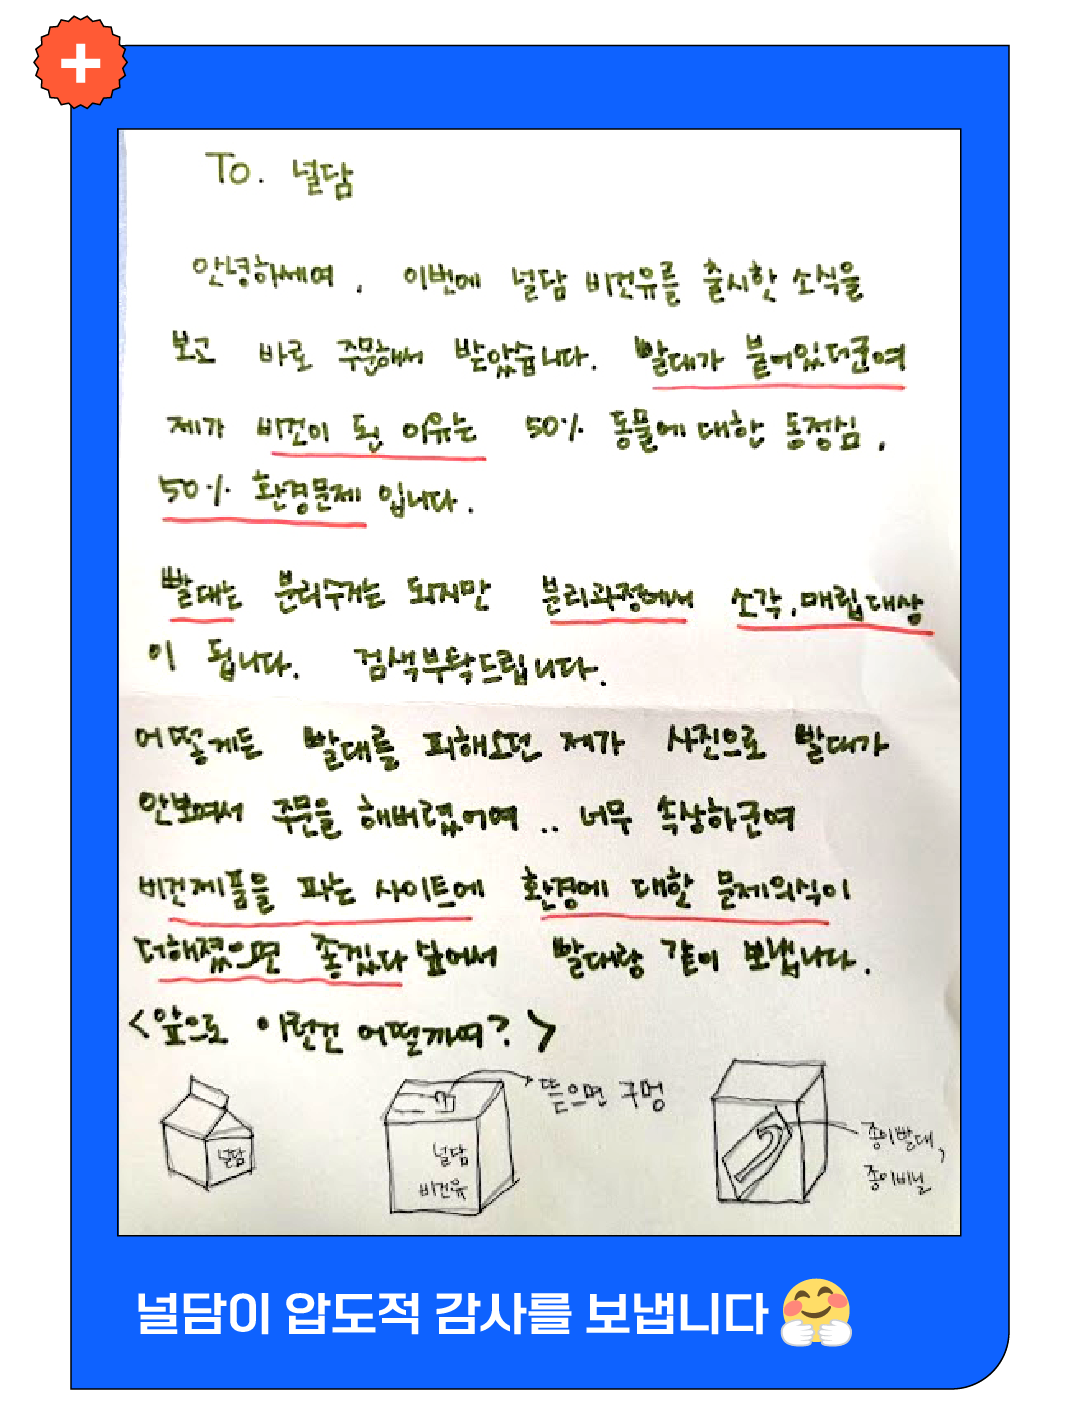 To. 널담
안녕하세여, 이번에 널담 비건유를 출시한 소식을
보고 바로 주문해서 받았습니다. 빨대가 붙어있더군여
제가 비건이 된 이유는 50% 동물에 대한 동정심,
50% 환경문제 입니다.
빨대는 분리수거는 되지만 분리과정에서 소각, 매립대상
이 됩니다. 검색부탁드립니다.
어떻게든 빨대를 피해오던 제가 사진으로 빨대가
안보여서 주문을 해버렸어여.. 너무 속상하군여
비건제품을 파는 사이트에 환경에 대한 문제의식이
더해졌으면 좋겠다 싶어서 빨대랑 같이 보냅니다.
<앞으로 이런건 어떨까여?>
뜯으면 구멍
널담
널담
비건유
종이빨대,
종이비닐
널담이 압도적 감사를 보냅니다